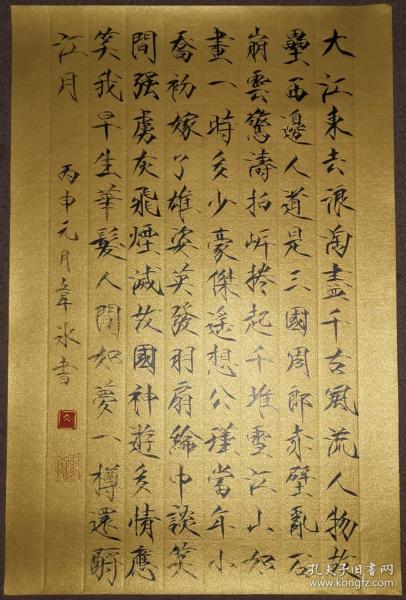 大江東去浪淘盡千古風流人物故
壘西邊人道是三國周郎赤壁亂石
崩雲驚濤拍岍捲起千堆雪江山如
畫一時多少豪傑遙想公瑾當年小
喬初嫁了雄姿英發羽扇綸巾談笑
間強虜灰飛煙滅故國神遊多情應
笑我早生華髮人間如夢一樽還酹
江月
丙申元月韋冰書
孔夫子旧书网
book.kongfz.com